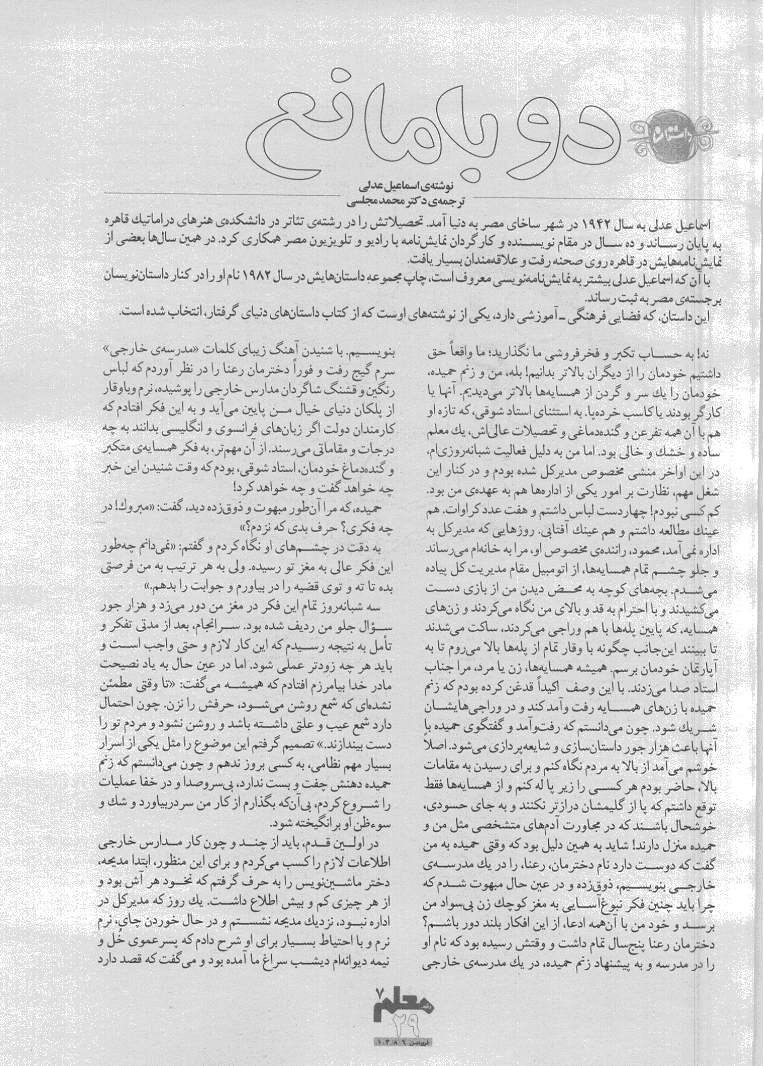 دو با مانع
داستان
نوشته‌ی اسماعیل عدلی
ترجمه‌ی دکتر محمد مجلسی
اسماعیل عدلی به سال ۱۹۴۲ در شهر ساخای مصر به دنیا آمد. تحصیلاتش را در رشته‌ی تئاتر در دانشکده‌ی هنرهای دراماتیک قاهره
به پایان رساند و ده سال در مقام نویسنده و کارگردان نمایش‌نامه با رادیو و تلویزیون مصر همکاری کرد. در همین سال‌ها بعضی از
نمایش‌نامه‌هایش در قاهره روی صحنه رفت و علاقه‌مندان بسیار یافت.
با آن که اسماعیل عدلی بیشتر به نمایش‌نامه‌نویسی معروف است، چاپ مجموعه داستان‌هایش در سال ۱۹۸۲ نام او را در کنار داستان‌نویسان
برجسته‌ی مصر به ثبت رساند.
این داستان، که فضایی فرهنگی ـ آموزشی دارد، یکی از نوشته‌های اوست که از کتاب داستان‌های دنیای گرفتار، انتخاب شده است.
نه! به حساب تکبر و فخرفروشی ما نگذارید؛ ما واقعاً حق
داشتیم خودمان را از دیگران بالاتر بدانیم! بله، من و زنم حمیده،
خودمان را یك سر و گردن از همسایه‌ها بالاتر می‌دیدیم. آنها یا
کارگر بودند یا کاسب خرده‌پا. به استثنای استاد شوقی، که تازه او
هم با آن همه تفرعن و گنده‌دماغی و تحصیلات عالی‌اش، یك معلم
ساده و خشك و خالی بود. اما من به دلیل فعالیت شبانه‌روزی‌ام،
در این اواخر منشی مخصوص مدیرکل شده بودم و در کنار این
شغل مهم، نظارت بر امور یکی از اداره‌ها هم به عهده‌ی من بود.
کم کسی نبودم! چهاردست لباس داشتم و هفت عدد کراوات. هم
عینك مطالعه داشتم و هم عینك آفتابی. روزهایی که مدیرکل به
اداره نمی‌آمد، محمود، راننده‌ی مخصوص او، مرا به خانه‌ام می‌رساند
و جلو چشم تمام همسایه‌ها، از اتومبیل مقام مدیریت کل پیاده
می‌شدم. بچه‌های کوچه به محض دیدن من از بازی دست
می‌کشیدند و با احترام به قد و بالای من نگاه می‌کردند و زن‌های
همسایه، که پایین پله‌ها با هم وراجی می‌کردند، ساکت می‌شدند
تا ببینند این‌جانب چگونه با وقار تمام از پله‌ها بالا می‌روم تا به
آپارتمان خودمان برسم. همیشه همسایه‌ها، زن یا مرد، مرا جناب
استاد صدا می‌زدند. با این وصف اکیداً قدغن کرده بودم که زنم
حمیده با زن‌های همسایه رفت و آمد کند و در وراجی‌هایشان
شریك شود. چون می‌دانستم که رفت‌وآمد و گفتگوی حمیده با
آنها باعث هزار جور داستان‌سازی و شایعه‌پردازی می‌شود. اصلاً
خوشم می‌آمد از بالا به مردم نگاه کنم و برای رسیدن به مقامات
بالا، حاضر بودم هر کسی را زیر پا له کنم و از همسایه‌ها فقط
توقع داشتم که پا از گلیمشان درازتر نکنند و به جای حسودی،
خوشحال باشند که در مجاورت آدم‌های متشخصی مثل من و
حمیده منزل دارند! شاید به همین دلیل بود که وقتی حمیده به من
گفت که دوست دارد نام دخترمان، رعنا، را در یك مدرسه‌ی
خارجی بنویسیم، ذوق‌زده و در عین حال مبهوت شدم که
چرا باید چنین فکر نبوغ‌آسایی به مغز کوچك زن بی‌سواد من
برسد و خود من با آن‌همه ادعا، از این افکار بلند دور باشم؟
دخترمان رعنا پنج‌سال تمام داشت و وقتش رسیده بود که نام او
را در مدرسه و به پیشنهاد زنم حمیده، در یك مدرسه‌ی خارجی
بنویسیم. با شنیدن آهنگ زیبای کلمات «مدرسه‌ی خارجی»
سرم گیج رفت و فوراً دخترمان رعنا را در نظر آوردم که لباس
رنگین و قشنگ شاگردان مدارس خارجی را پوشیده، نرم و باوقار
از پلکان دنیای خیال من پایین می‌آید و به این فکر افتادم که
کارمندان دولت اگر زبان‌های فرانسوی و انگلیسی بدانند به چه
درجات و مقاماتی می‌رسند. از آن مهم‌تر، به فکر همسایه‌ی متکبر
و گنده‌دماغ خودمان، استاد شوقی، بودم که وقت شنیدن این خبر
چه خواهد گفت و چه خواهد کرد!
حمیده، که مرا آن‌طور مبهوت و ذوق‌زده دید، گفت: «مبروك! در
چه فکری؟ حرف بدی که نزدم؟»
به دقت در چشم‌های او نگاه کردم و گفتم: «نمی‌دانم چه‌طور
این فکر عالی به مغز تو رسیده. ولی به هر ترتیب به من فرصتی
بده تا ته و توی قضیه را در بیاورم و جوابت را بدهم.»
سه شبانه‌روز تمام این فکر در مغز من دور می‌زد و هزار جور
سؤال جلو من ردیف شده بود. سرانجام، بعد از مدتی تفکر و
تأمل به نتیجه رسیدم که این کار لازم و حتی واجب است و
باید هر چه زودتر عملی شود. اما در عین حال به یاد نصیحت
مادر خدا بیامرزم افتادم که همیشه می‌گفت: «تا وقتی مطمئن
نشده‌ای که شمع روشن می‌شود، حرفش را نزن. چون احتمال
دارد شمع عیب و علتی داشته باشد و روشن نشود و مردم تو را
دست بیندازند.» تصمیم گرفتم این موضوع را مثل یکی از اسرار
بسیار مهم نظامی، به کسی بروز ندهم و چون می‌دانستم که زنم
حمیده دهنش چفت و بست ندارد، بی‌سروصدا و در خفا عملیات
را شروع کردم، بی‌آن‌که بگذارم از کار من سردربیاورد و شك و
سوءظن او برانگیخته شود.
در اولین قدم، باید از چند و چون کار مدارس خارجی
اطلاعات لازم را کسب می‌کردم و برای این منظور، ابتدا مدیحه،
دختر ماشین‌نویس را به حرف گرفتم که نخود هر آش بود و
از هر چیزی کم و بیش اطلاع داشت. یك روز که مدیرکل در
اداره نبود، نزدیك مدیحه نشستم و در حال خوردن چای، نرم
نرم و با احتیاط بسیار برای او شرح دادم که پسرعموی خُل و
نیمه دیوانه‌ام دیشب سراغ ما آمده بود و می‌گفت که قصد دارد
معلم
۷
۲۹
فروردین ۱۳۸۶